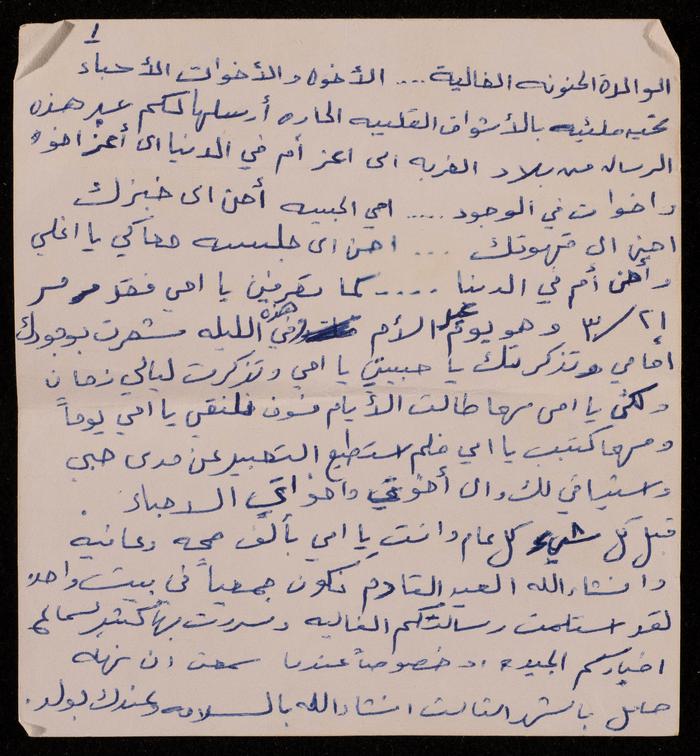 ١
الوالدة الحنونه الغالية ... الأخوه والأخوات الأحباء
تحيه مليئه بالأشواق القلبيه الحاره أرسلها لكم عبر هذه
الرساله من بلاد الغربه الى اعز أم في الدنيا الى أعز اخوه
واخوات في الوجود .... امي الحبيبه أحن الى خبزك
احن الى قهوتك ... احن الى جلسه معاكي يا اغلى
وأحن أم في الدنيا .... كما تعرفين يا امي فقد مر
٢١/٣ وهو يوم عيد الأم في هذه الليله شعرت بوجودك
أمامي وتذكرتك يا حبيبتي يا امي وتذكرت ليالي زمان
ولكن يا امي مهما طالت الأيام فسوف نلتقي يا امي يوماً
ومهما كتبت يا امي فلم استطيع التعبير عن مدى حبي
واشتياقي لك وال أخوتي واخواتي الاحباء .
قبل كل شيء كل عام وانت يا امي بألف صحه وعافيه
وانشاءالله العيد القادم نكون جميعاً في بيت واحد
لقد استلمت رسالتكم الغاليه وسررت بها كثير لسماع
اخباركم الجيده وخصوصاً عندما سمعت ان نهله
حامل بالشهر الثالث انشاءالله بالسلامه وعندك بولد.